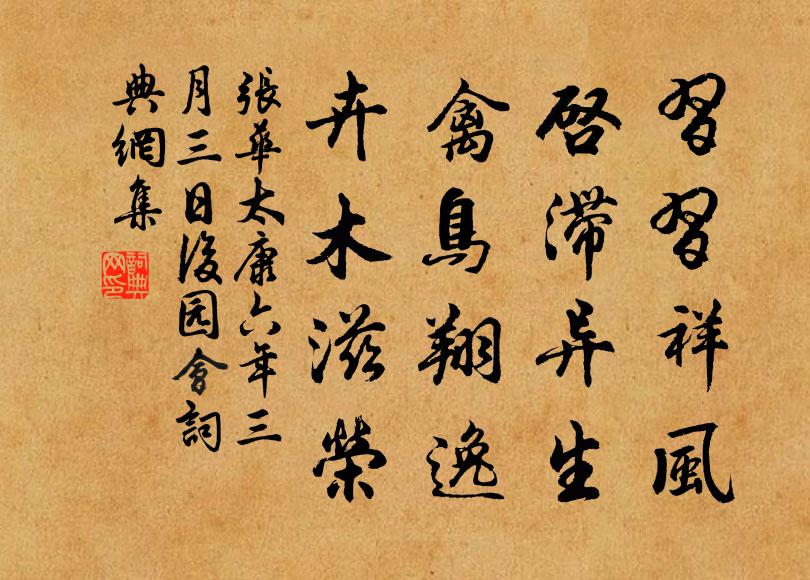 習習祥風
啓滞异生
禽鳥翔逸
卉木滋榮
張華太康六年三
月三日後园會詞
典網集
詞典
网印